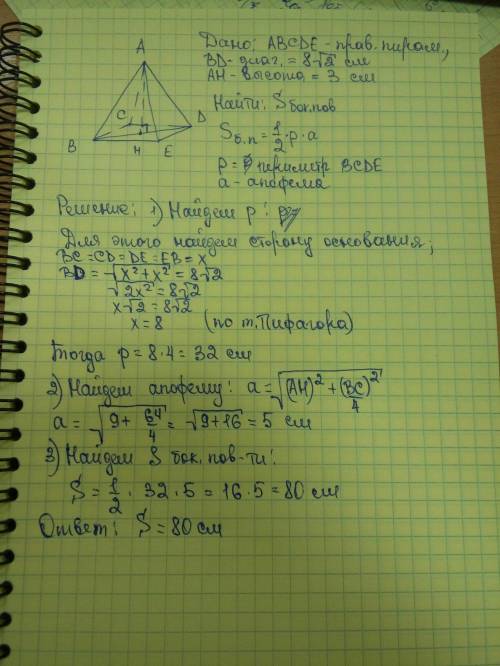 A
C
D
B
H
E
Дано: ABCDE - прав. пирам.,
BD - диаг. = 8√2 см
AH - высота = 3 см
Найти: S бок.пов
S б.п = 1/2 · p · a
p = периметр BCDE
a - апофема
Решение: 1) Найдем p:
Для этого найдем сторону основания;
BC = CD = DE = EB = x
BD = √x² + x² = 8√2
√2x² = 8√2
x√2 = 8√2
x = 8 (по т. Пифагора)
Тогда p = 8 · 4 = 32 см
2) Найдем апофему: a = √(AH)² + (BC)²/4
a = √9 + 64/4 = √9 + 16 = 5 см
3) Найдем S бок. пов-ти:
S = 1/2 · 32 · 5 = 16 · 5 = 80 см
Ответ: S = 80 см